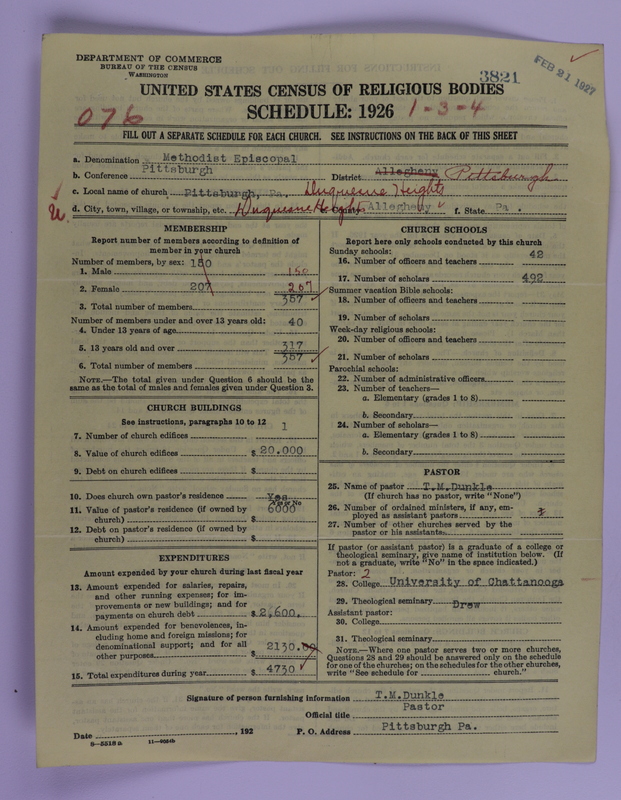 DEPARTMENT OF COMMERCE
BUREAU OF THE CENSUS
WASHINGTON
3821
FEB 21 1927
UNITED STATES CENSUS OF RELIGIOUS BODIES
076
SCHEDULE: 1926
1-3-4
FILL OUT A SEPARATE SCHEDULE FOR EACH CHURCH. SEE INSTRUCTIONS ON THE BACK OF THIS SHEET
a. Denomination Methodist Episcopal
b. Conference Pittsburgh District Allegheny Pittsburgh
c. Local name of church Pittsburgh, Pa. Duquesne Heights
d. City, town, village, or township, etc. Duquesne Heights County Allegheny f. State Pa.
MEMBERSHIP
Report number of members according to definition of
member in your church
Number of members, by sex: 150
1. Male 150
2. Female 207 207
3. Total number of members 357
Number of members under and over 13 years old:
4. Under 13 years of age 40
5. 13 years old and over 317
6. Total number of members 357
NOTE.—The total given under Question 6 should be
same as the total of males and females given under Question 3.
CHURCH BUILDINGS
See instructions, paragraphs 10 to 12
7. Number of church edifices 1
8. Value of church edifices $ 20.000
9. Debt on church edifices $
10. Does church own pastor's residence Yes
Yes or No
11. Value of pastor's residence (if owned by
church) $ 6000
12. Debt on pastor's residence (if owned by
church) $
EXPENDITURES
Amount expended by your church during last fiscal year
13. Amount expended for salaries, repairs,
and other running expenses; for im-
provements or new buildings; and for
payments on church debt $ 2,600.
14. Amount expended for benevolences, in-
cluding home and foreign missions; for
denominational support; and for all
other purposes $ 2130.00
15. Total expenditures during year $ 4730
CHURCH SCHOOLS
Report here only schools conducted by this church
Sunday schools:
16. Number of officers and teachers 42
17. Number of scholars 492
Summer vacation Bible schools:
18. Number of officers and teachers
19. Number of scholars
Week-day religious schools:
20. Number of officers and teachers
21. Number of scholars
Parochial schools:
22. Number of administrative officers
23. Number of teachers—
a. Elementary (grades 1 to 8)
b. Secondary
24. Number of scholars—
a. Elementary (grades 1 to 8)
b. Secondary
PASTOR
25. Name of pastor T.M.Dunkle
(If church has no pastor, write "None")
26. Number of ordained ministers, if any, em-
ployed as assistant pastors
27. Number of other churches served by the
pastor or his assistants
If pastor (or assistant pastor) is a graduate of a college or
theological seminary, give name of institution below. (If
not a graduate, write "No" in the space indicated.)
Pastor: 2
28. College University of Chattanooga
29. Theological seminary Drew
Assistant pastor:
30. College
31. Theological seminary
NOTE.—Where one pastor serves two or more churches,
Questions 28 and 29 should be answered only on the schedule
for one of the churches; on the schedules for the other churches,
write "See schedule for church."
Signature of person furnishing information T.M.Dunkle
Official title Pastor
Date , 192 P. O. Address Pittsburgh Pa.